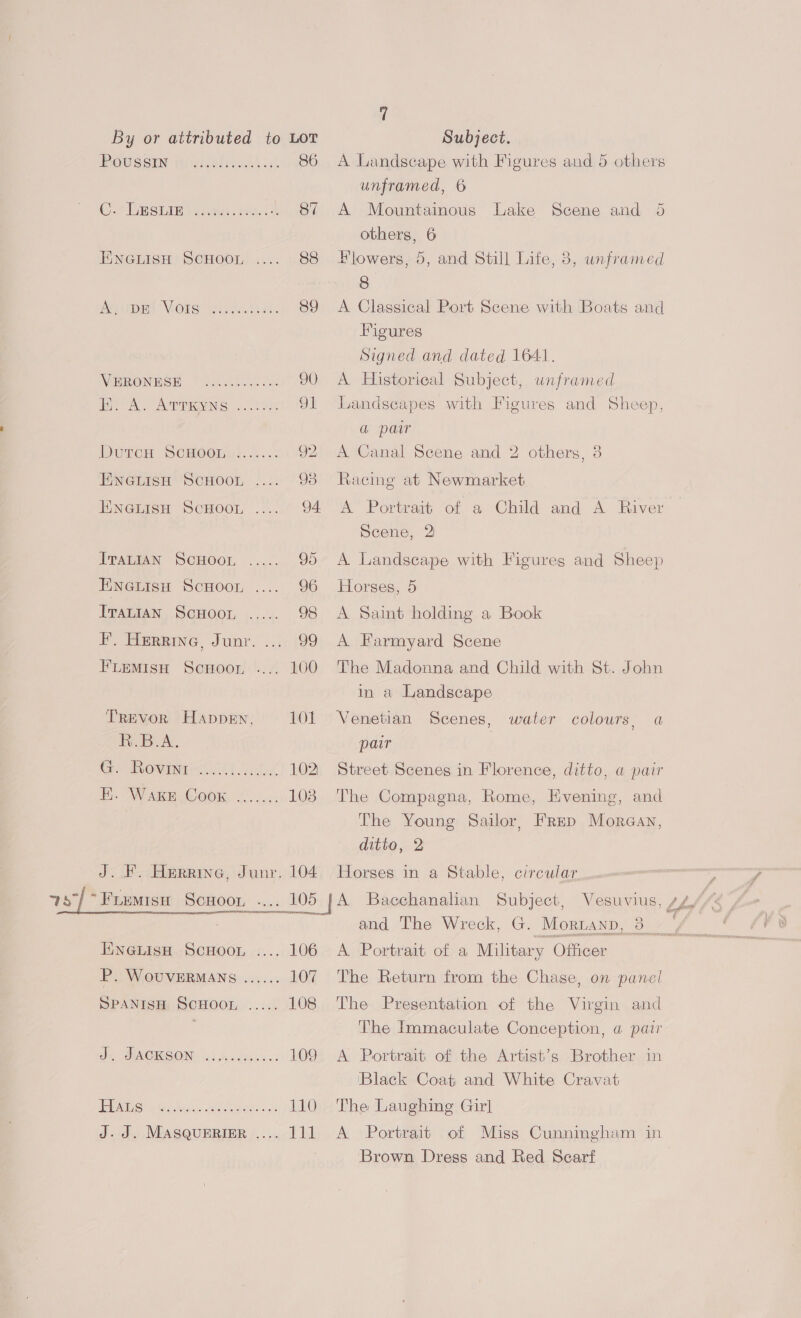 7
By or attributed to LOT Subject.
POUSSIN .............. 86 A Landscape with Figures and 5 others
unframed, 6
C. LESLIE ............. 87 A Mountainous Lake Scene and 5
others, 6
ENGLISH SCHOOL .... 88 Flowers, 5, and Still Life, 3, unframed
8
A. DE VOIS ........... 89 A Classical Port Scene with Boats and
Figures
Signed and dated 1641.
VERONESE ............ 90 A Historical Subject, unframed
E. A. ATTKYNS ....... 91 Landscapes with Figures and Sheep,
a pair
DUTCH SCHOOL ....... 92 A Canal Scene and 2 others, 3
ENGLISH SCHOOL .... 93 Racing at Newmarket
ENGLISH SCHOOL .... 94 A Portrait of a Child and A River
Scene, 2
ITALIAN SCHOOL ..... 95 A Landscape with Figures and Sheep
ENGLISH SCHOOL .... 96 Horses, 5
ITALIAN SCHOOL ..... 98 A Saint holding a Book
F. HERRING, Junr. ... 99 A Farmyard Scene
FLEMISH SCHOOL .... 100 The Madonna and Child with St. John
in a Landscape
TREVOR HADDEN, 101 Venetian Scenes, water colours, a
R.B.A. pair
G. ROVINI ............ 102 Street Scenes in Florence, ditto, a pair
E. WAKE COOK ....... 103 The Compagna, Rome, Evening, and
The Young Sailor, FRED MORGAN,
ditto, 2
J. F. HERRING, Junr. 104 Horses in a Stable, circular
FLEMISH SCHOOL .... 105 A Bacchanalian Subject, Vesuvius,
and The Wreck, G. MORLAND, 3
ENGLISH SCHOOL .... 106 A Portrait of a Military Officer
P. WOUVERMANS ...... 107 The Return from the Chase, on panel
SPANISH SCHOOL ..... 108 The Presentation of the Virgin and
The Immaculate Conception, a pair
J. JACKSON ........... 109 A Portrait of the Artist's Brother in
Black Coat and White Cravat
HALS ................. 110 The Laughing Girl
J. J. MASQUERIER .... 111 A Portrait of Miss Cunningham in
Brown Dress and Red Scarf